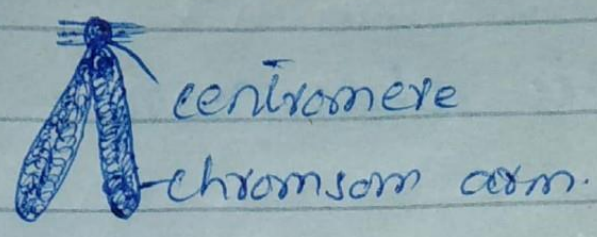 centromere
chromsom arm.